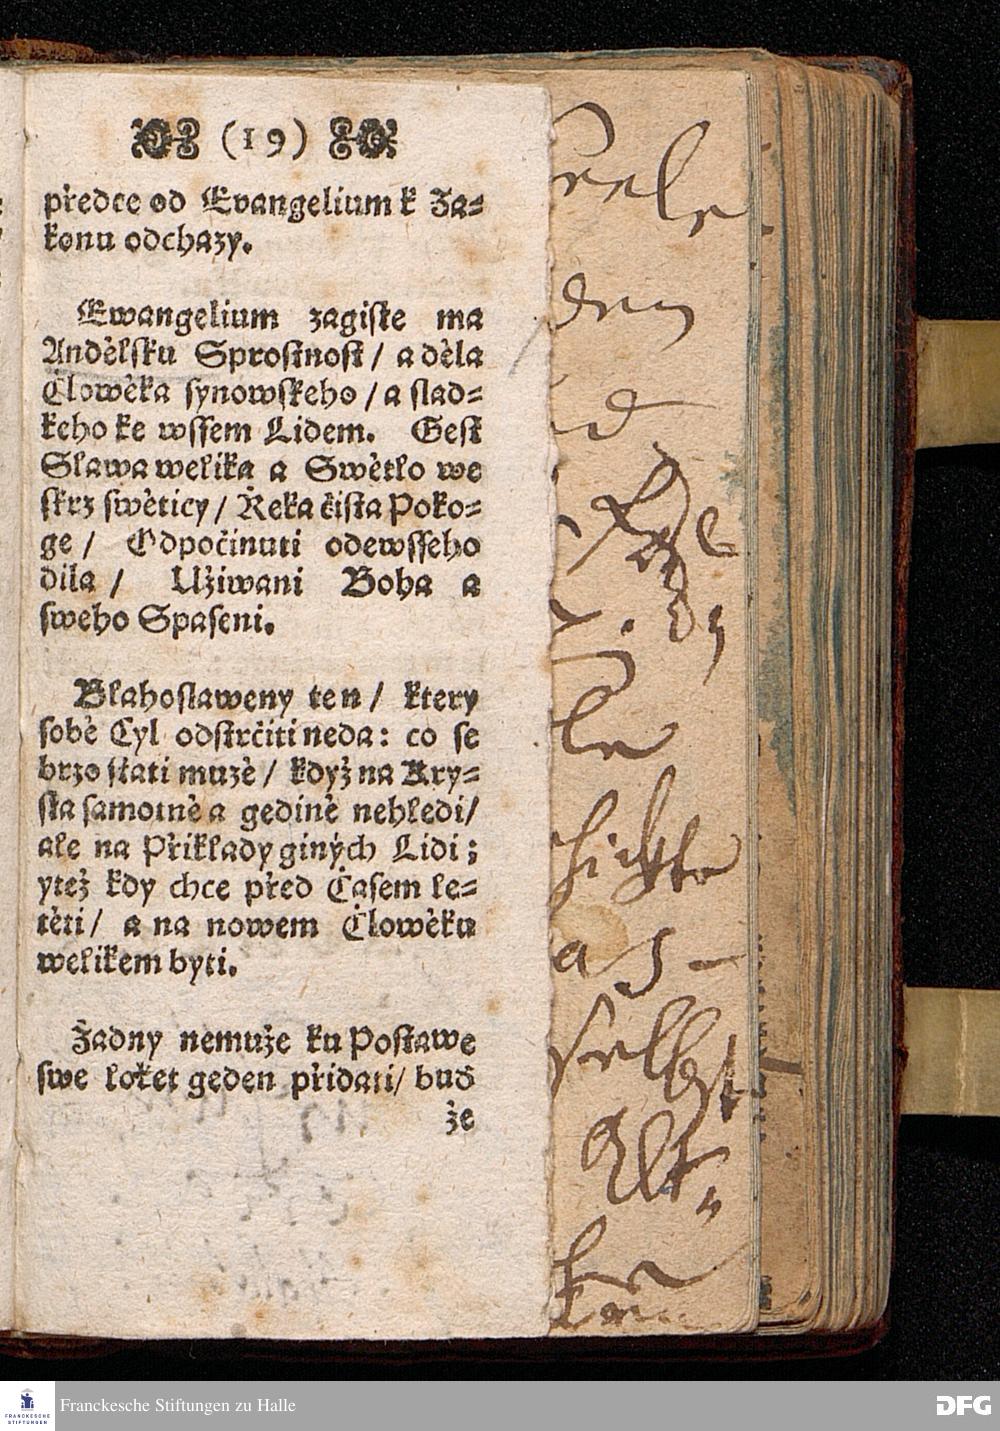 (19)
předce od Evangelium k Za-
konu odchazy.
Ewangelium zagiste ma
Andèlsku Sprostnost / a dèla
Člowèka synowskeho / a slad-
keho ke wssem Lidem. Gest
Slawa welika a Swètlo we
skrz swèticy / Řeka čista Poko-
ge / Odpočinuti odewsseho
dila / Užiwani Boha a
sweho Spaseni.
Blahoslaweny ten / ktery
sobè Cyl odstrčiti neda: co se
brzo stati muzè / když na Kry-
sta samotnè a gedinè nehledi/
ale na Přiklady giných Lidi;
ytež kdy chce před Časem le-
tèti / a na nowem Člowèku
welikem byti.
Žadny nemuže ku Postawe
swe loket geden přidati / buď
že
den
le
as-
selbst
Franckesche Stiftungen zu Halle
FRANCKESCHE
STIFTUNGEN
DFG